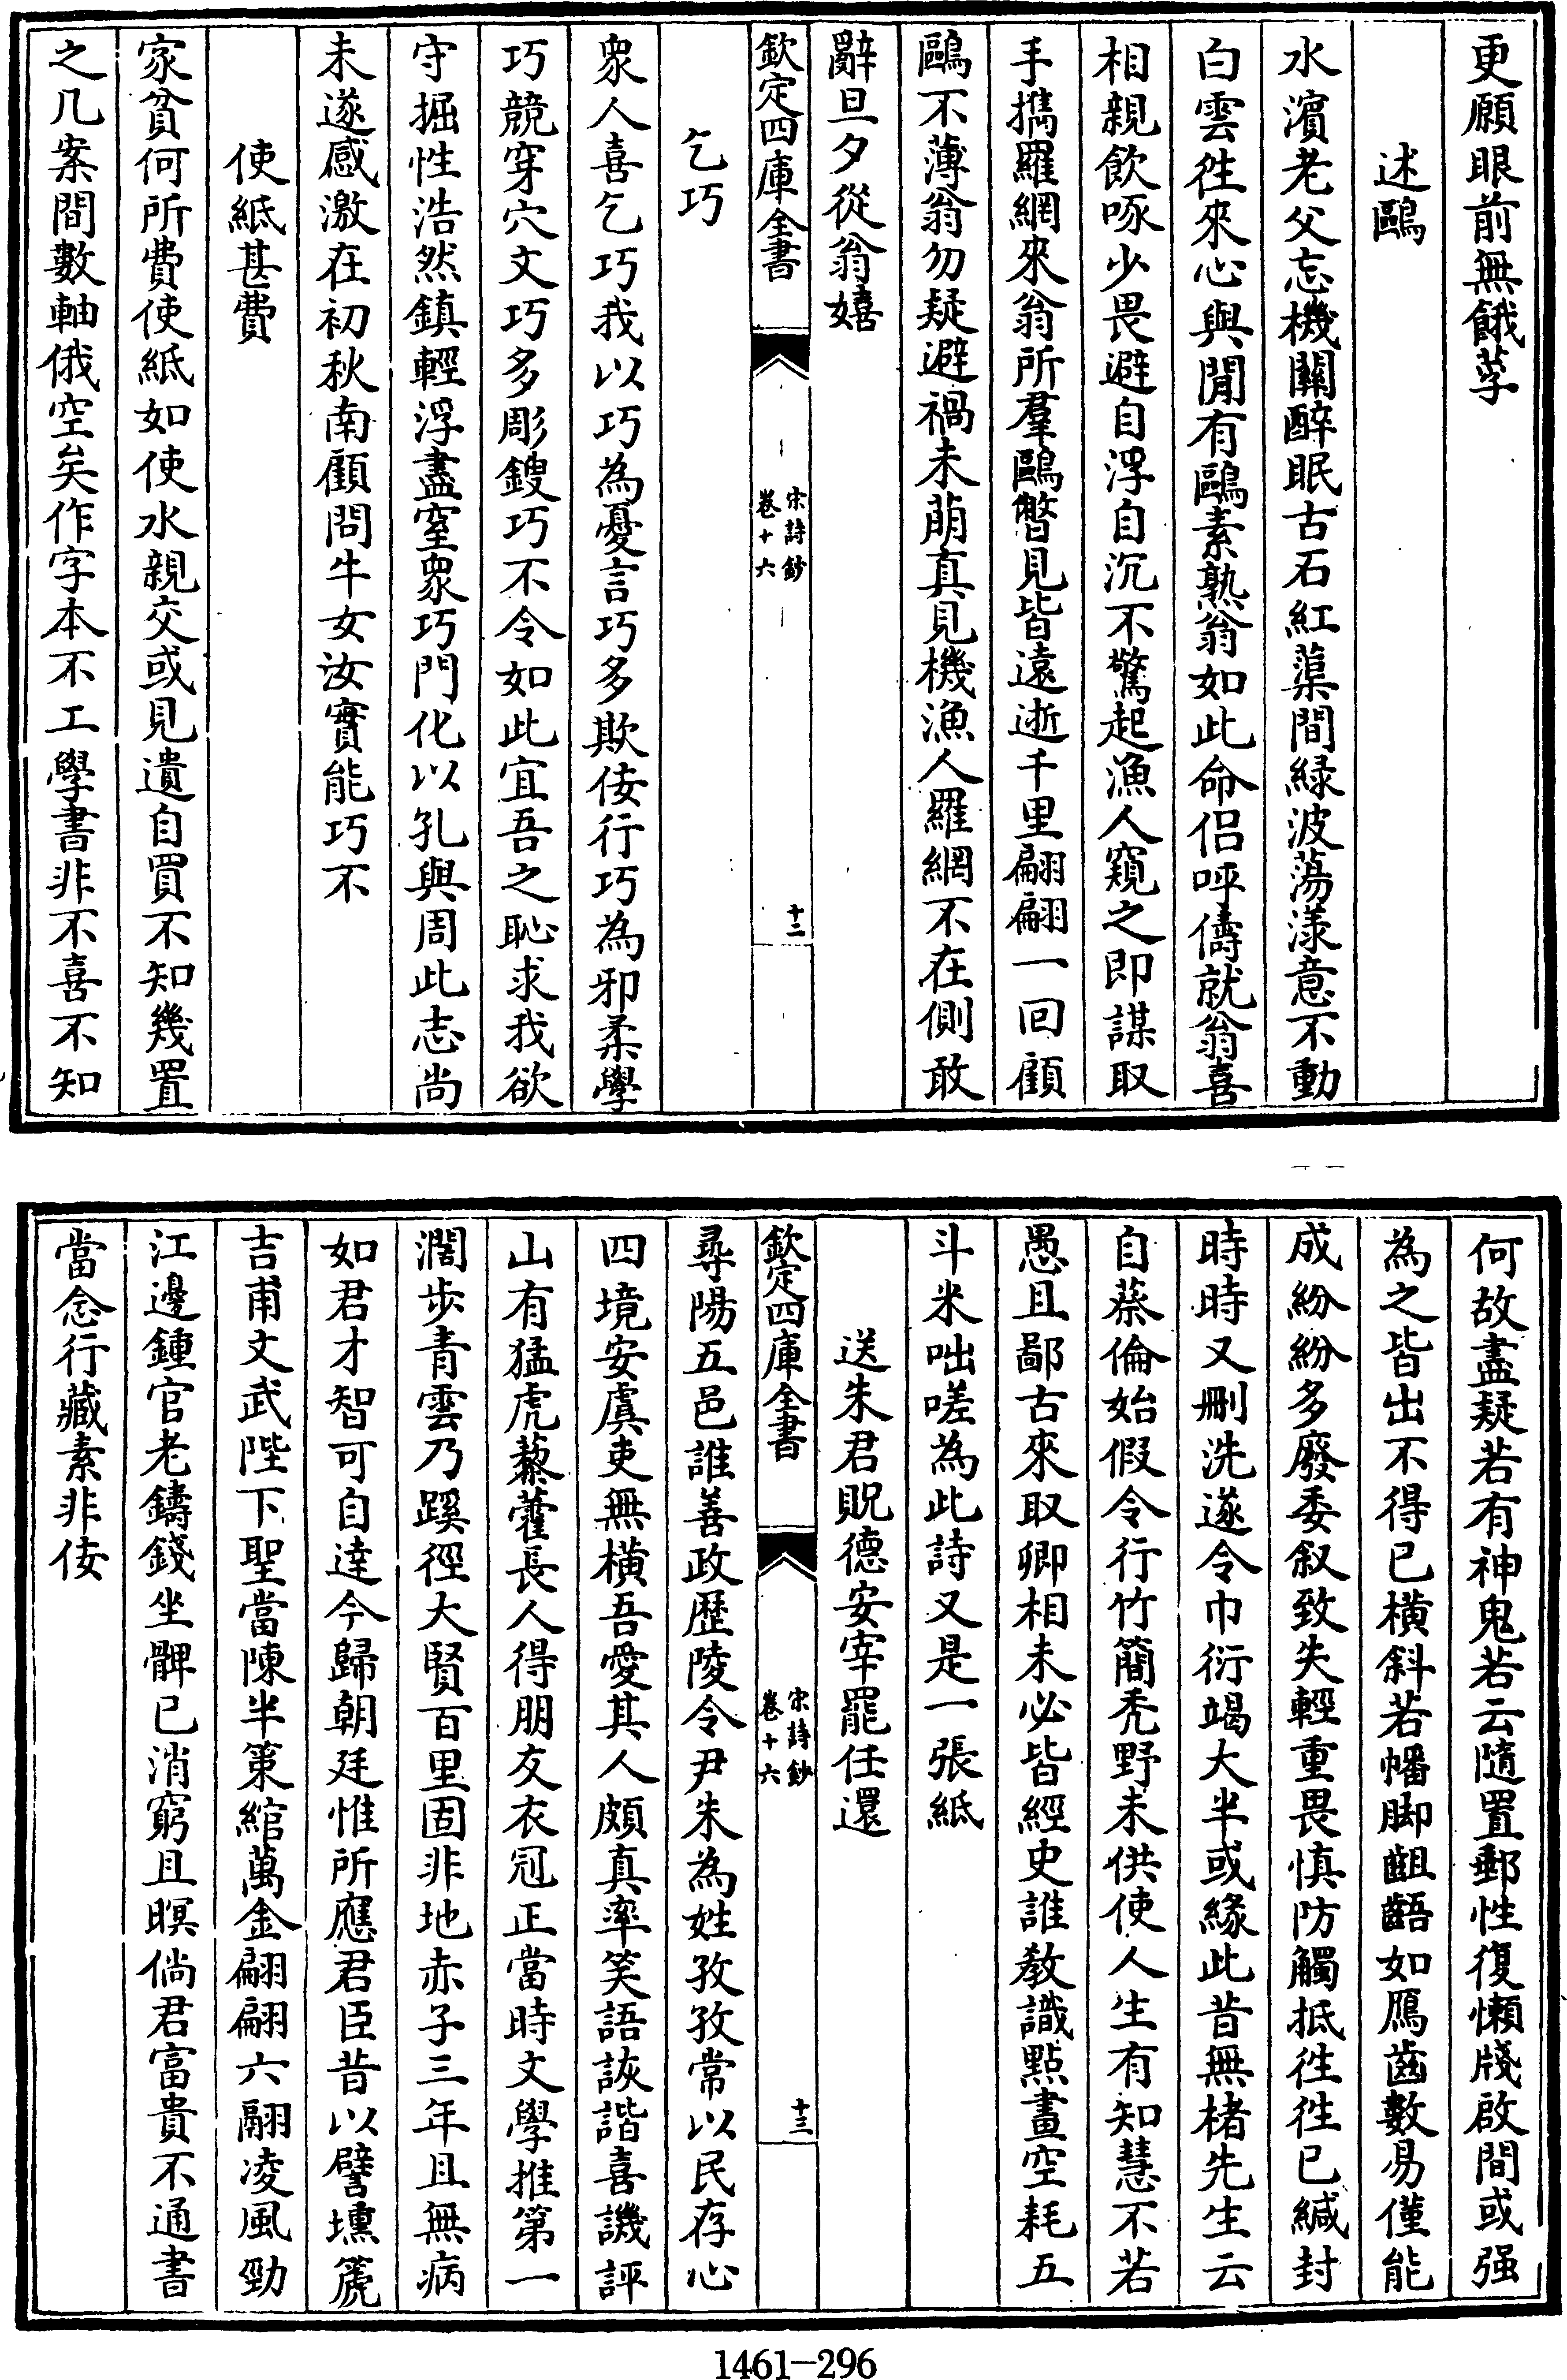 更願眼前無餓莩
述鷗
水濱老父忘機關醉眠古石紅蕖間綠波蕩漾意不動
白雲徃來心與閒有鷗素熟翁如此命侣呼儔就翁喜
相親飲啄少畏避自浮自沉不驚起漁人窺之即謀取
手攜羅網來翁所羣鷗瞥見皆遠逝千里翩翩一回顧
鷗不薄翁勿疑避禍未萌真見機漁人羅網不在側敢
辭旦夕從翁嬉
欽定四庫全書
宋詩鈔
卷十六
十二
乞巧
衆人喜乞巧我以巧為憂言巧多欺佞行巧為邪柔學
巧競穿穴文巧多彫鎪巧不令如此宜吾之恥求我欲
守掘性浩然鎮輕浮盡窒衆巧門化以孔與周此志尚
未遂感激在初秋南顧問牛女汝實能巧不
使紙甚費
家貧何所費使紙如使水親交或見遺自買不知幾置
之几案間數軸俄空矣作字本不工學書非不喜不知
何故盡疑若有神鬼若云隨置郵性復懶牋啟間或强
為之皆出不得已橫斜若幡脚齟齬如鴈齒數易僅能
成紛紛多廢委叙致失輕重畏慎防觸抵徃徃已緘封
時時又刪洗遂令巾衍竭大半或緣此昔無楮先生云
自蔡倫始假令行竹簡秃野未供使人生有知慧不若
愚且鄙古來取卿相未必皆經史誰教識點畫空耗五
斗米咄嗟為此詩又是一張紙
送朱君貺德安宰罷任還
欽定四庫全書
宋詩鈔
卷十六
十三
尋陽五邑誰善政歴陵令尹朱為姓孜孜常以民存心
四境安虞吏無橫吾愛其人頗真率笑語詼諧喜譏評
山有猛虎藜藿長人得朋友衣冠正當時文學推第一
濶步青雲乃蹊徑大賢百里固非地赤子三年且無病
如君才智可自達今歸朝廷惟所應君臣昔以譬壎篪
吉甫文武陛下聖當陳半䇿綰萬金翩翩六翮凌風勁
江邊鍾官老鑄錢坐髀已消窮且暝倘君富貴不通書
當念行藏素非佞
1461—296